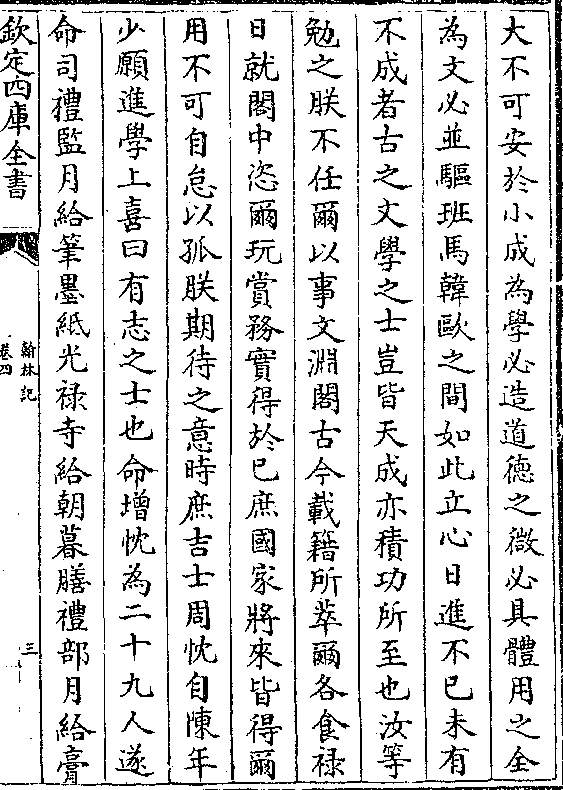 大不可安於小成為學必造道德之微必具體用之全
為文必並驅班馬韓歐之間如此立心日進不已未有
不成者古之文學之士豈皆天成亦積功所至也汝等
勉之朕不任爾以事文淵閣古今載籍所萃爾各食祿
日就閣中恣爾玩賞務實得於己庶國家將來皆得爾
用不可自怠以孤朕期待之意時庶吉士周忱自陳年
少願進學上喜曰有志之士也命增忱為二十九人遂
命司禮監月給筆墨紙光祿寺給朝暮膳禮部月給膏
欽定四庫全書
翰林記
卷四
三